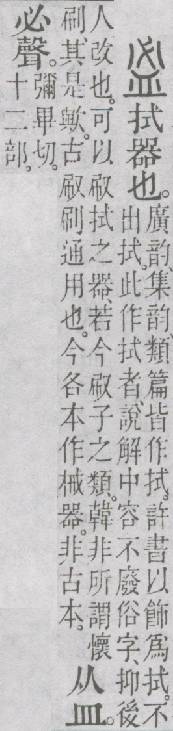 𥁑 拭器也。廣韵、集韵、類篇皆作拭。許書以飾爲拭。不
出拭。此作拭者、說解中容不廢俗字、抑後
人改也。可以㕞拭之器、若今㕞子之類。韓非所謂懷
刷、其是歟。古㕞刷通用也。今各本作械器。非古本。
从皿。
必聲。彌畢切。
十二部。